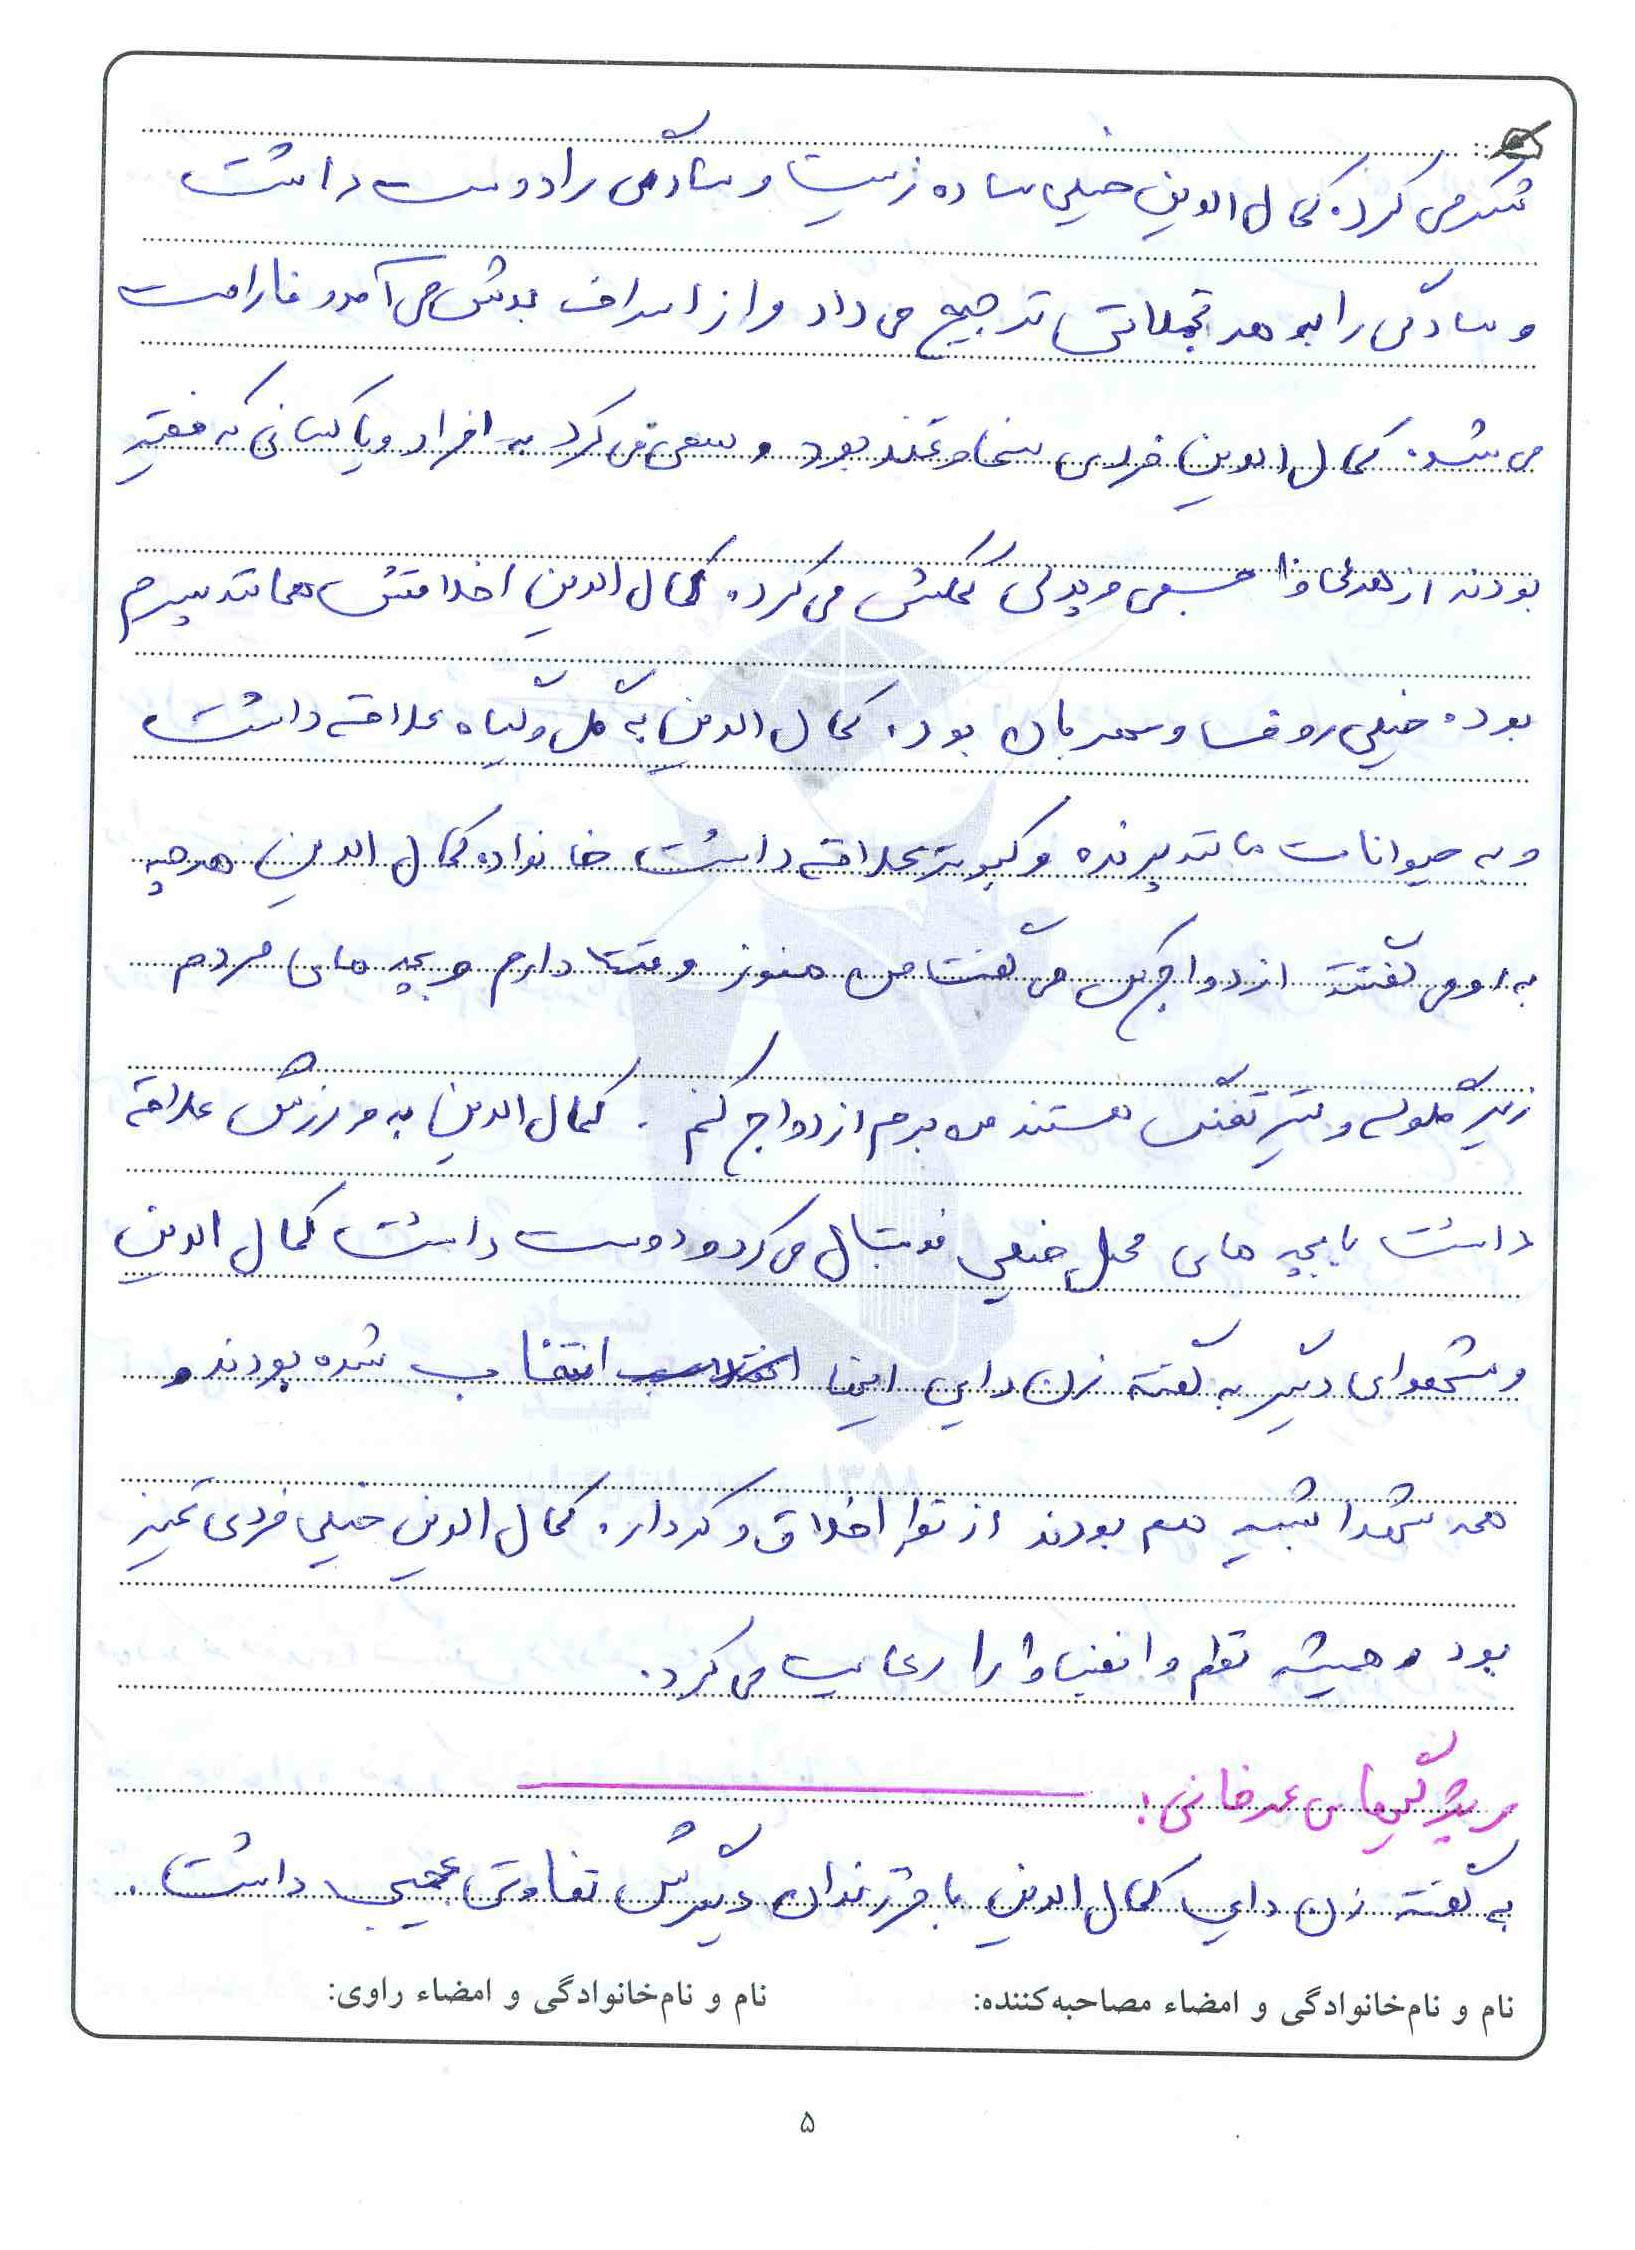 تشکر می کرد. کمال الدین خیلی ساده زیست و سادگی را دوست داشت
و سادگی را بر هر تجملاتی ترجیح می داد و از اسراف بدش می آمد و ناراحت
می شد. کمال الدین فردی سخاوتمند بود و سعی می کرد به افراد و یا کسانی که فقیر
بودند از هر لحاظ جسمی و پولی کمکش می کرد. کمال الدین اخلاقش همانند پسرم
بود. خیلی روف و مهربان بود. کمال الدین به گل و گیاه علاقه داشت
و به حیوانات مانند پرنده و کبوتر علاقه داشت خانواده کمال الدین هرچه
به او می گفتند ازدواج کن می گفت من هنوز وقت دارم و بچه های مردم
زیر گلوله و تیر تفنگ هستند من برم ازدواج کنم. کمال الدین به ورزش علاقه
داشت با بچه های محل خیلی فوتبال می کرد و دوست داشت کمال الدین
و شهدای دیگر به گفته زن دایی اینها انتخاب شده بودند و
همه شهدا شبیه هم بودند از نظر اخلاق و کردار. کمال الدین خیلی فردی تمیز
بود و همیشه نظم و انضباط را رعایت می کرد.
ویژگیهای عرفانی:
به گفته زن دایی کمال الدین با فرزندان دیگرش تفاوتی عجیب داشت.
نام و نام‌خانوادگی و امضاء مصاحبه‌کننده: نام و نام‌خانوادگی و امضاء راوی:
۵